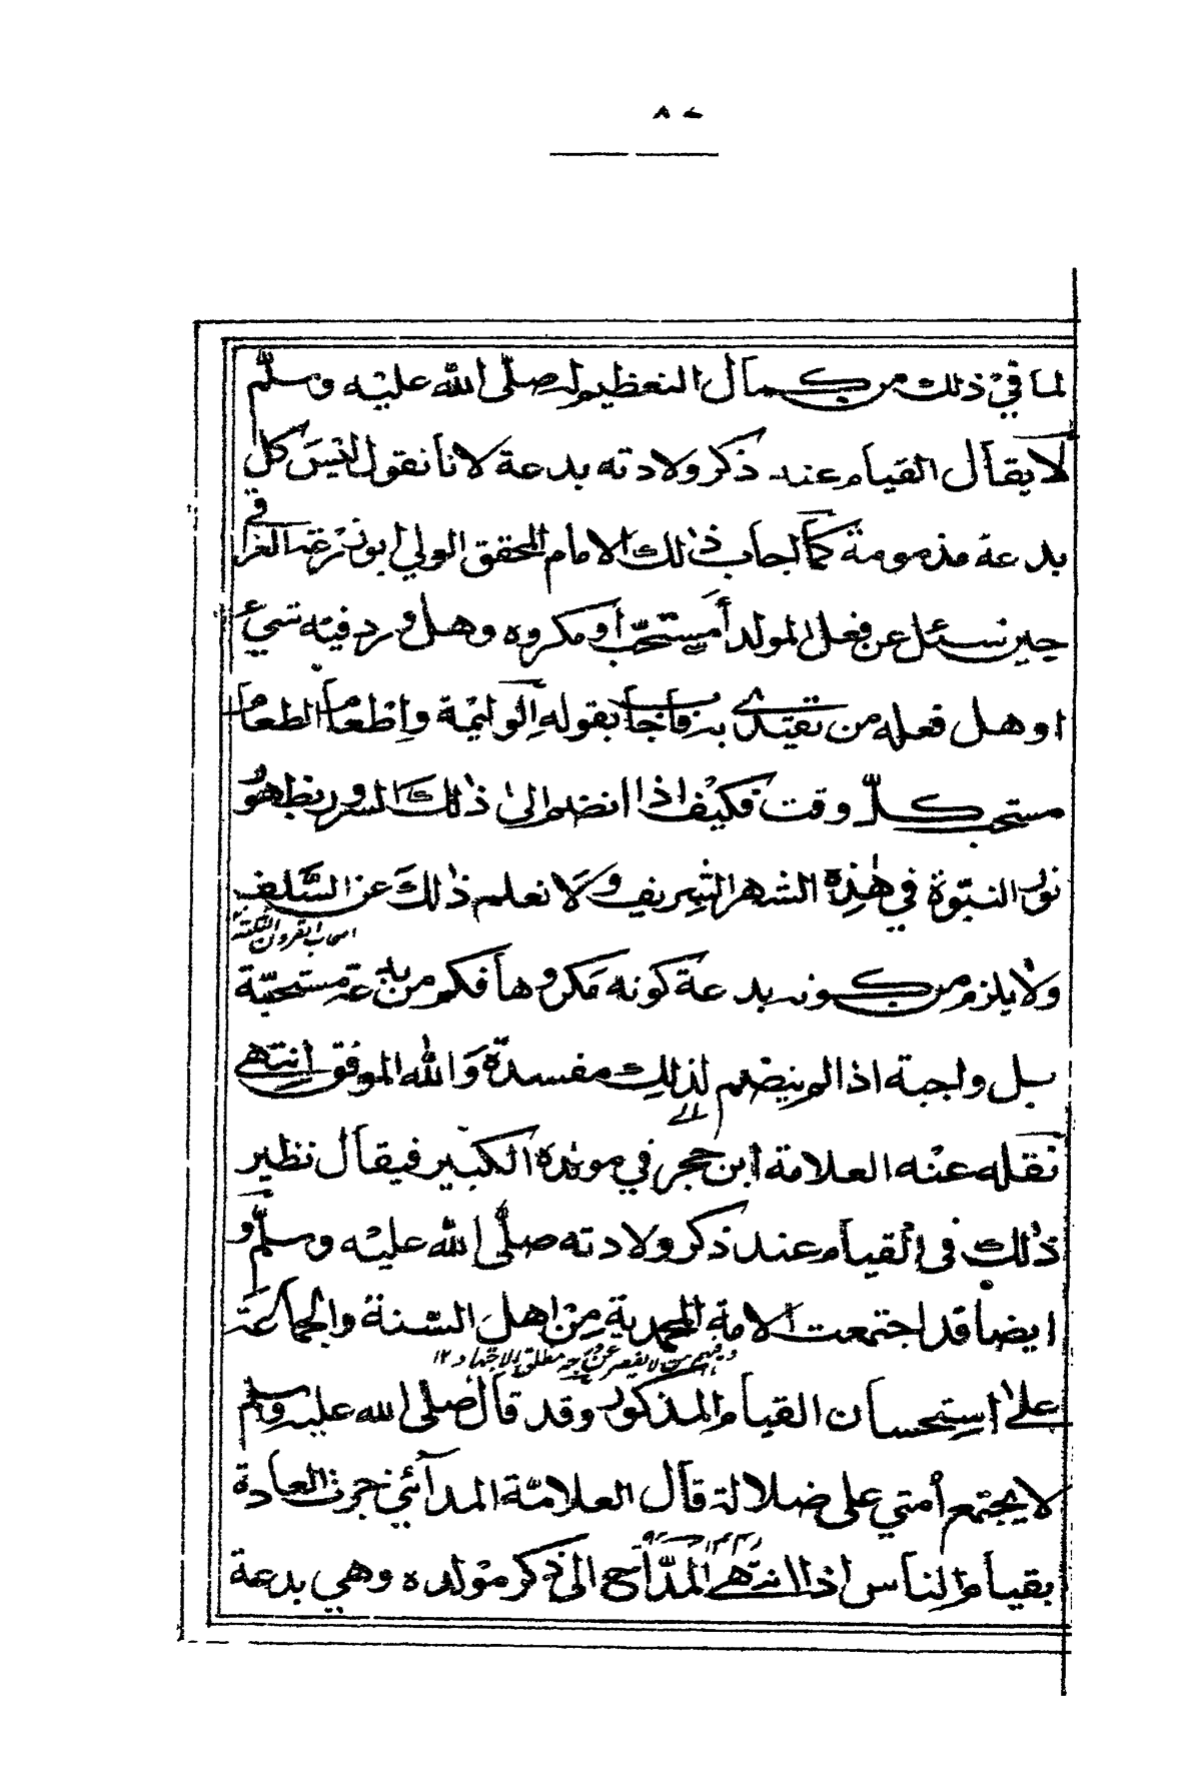 لما في ذلك من كمال التعظيم له صلى الله عليه وسلم
لا يقال القيام عند ذكر ولادته بدعة لانا نقول ليس كل
بدعة مذمومة كما اجاب ذلك الامام المحقق الولي ابو زرعة العراقي
حين سئل عن فعل المولد أمستحب او مكروه وهل ورد فيه شيء
او هل فعله من يقتدى به فاجاب بقوله الوليمة واطعام الطعام
مستحب كل وقت فكيف اذا انضم الى ذلك السرور بظهور
نور النبوة في هذه الشهر الشريف ولا نعلم ذلك عن السلف
اصحاب القرون الثلثة
ولا يلزم من كونه بدعة كونه مكروها فكم من بدعة مستحبة
بل واجبة اذا لم ينضم لذلك مفسدة والله الموفق انتهى
نقله عنه العلامة ابن حجر في مولده الكبير فيقال نظير
ذلك في القيام عند ذكر ولادته صلى الله عليه وسلم و
ايضا قد اجتمعت الامة المحمدية من اهل السنة والجماعة
من لا يقصر عن درجة مطلق الاجتهاد ١٢
على استحسان القيام المذكور وقد قال صلى الله عليه وسلم
لا يجتمع أمتي على ضلالة قال العلامة المدائني جرت العادة
بقيام الناس اذا انتهى المداح الى ذكر مولده وهي بدعة